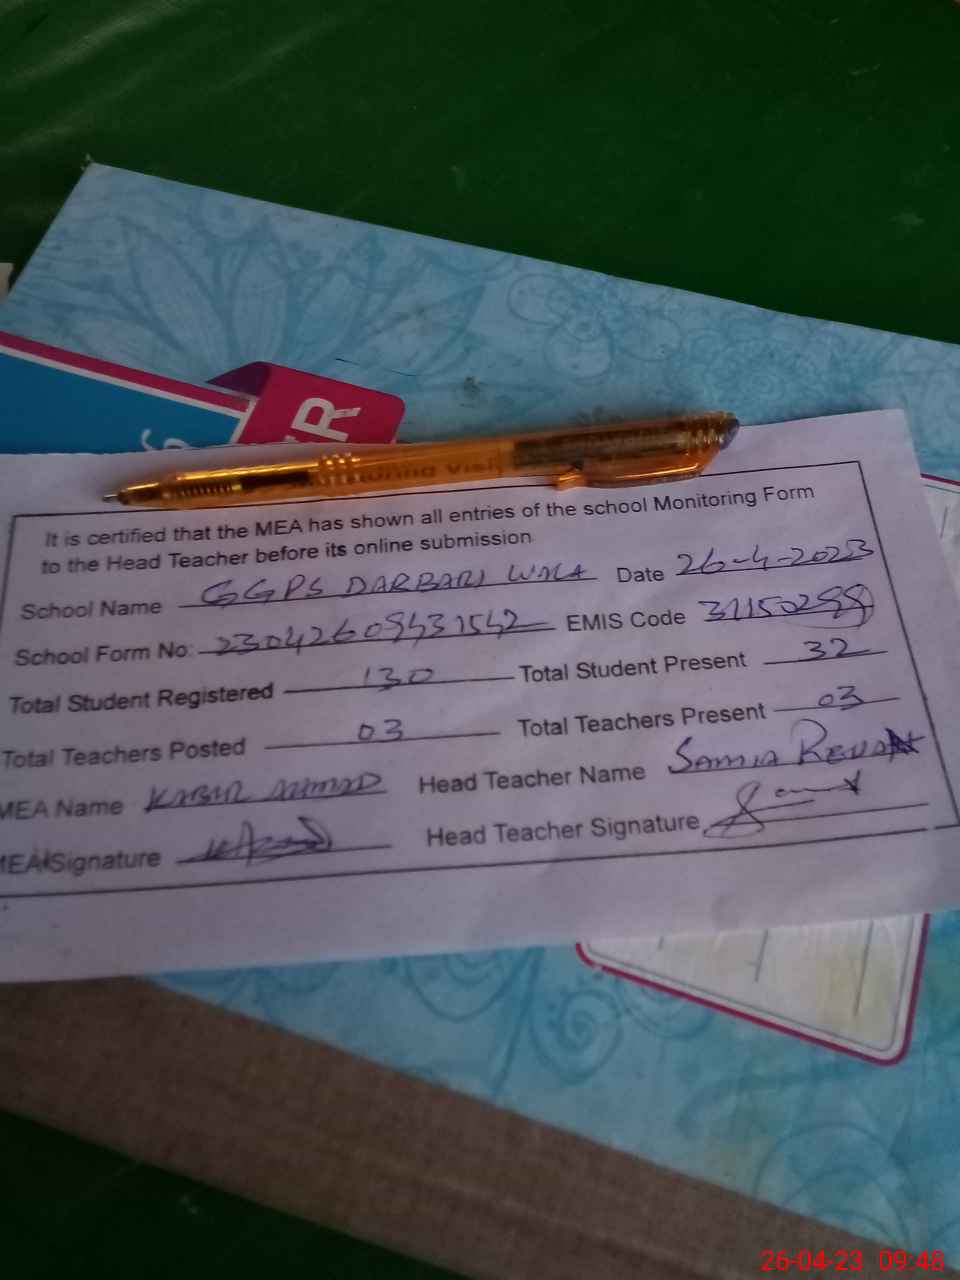 R
It is certified that the MEA has shown all entries of the school Monitoring Form
to the Head Teacher before its online submission
School Name GGPS DARBARI WALA Date 26-4-2023
School Form No: EMIS Code 31150299
Total Student Registered 130 Total Student Present 32
Total Teachers Posted 03 Total Teachers Present 03
MEA Name KABIR AHMAD Head Teacher Name SAMIA
MEA Signature Head Teacher Signature
26-04-23 09:48